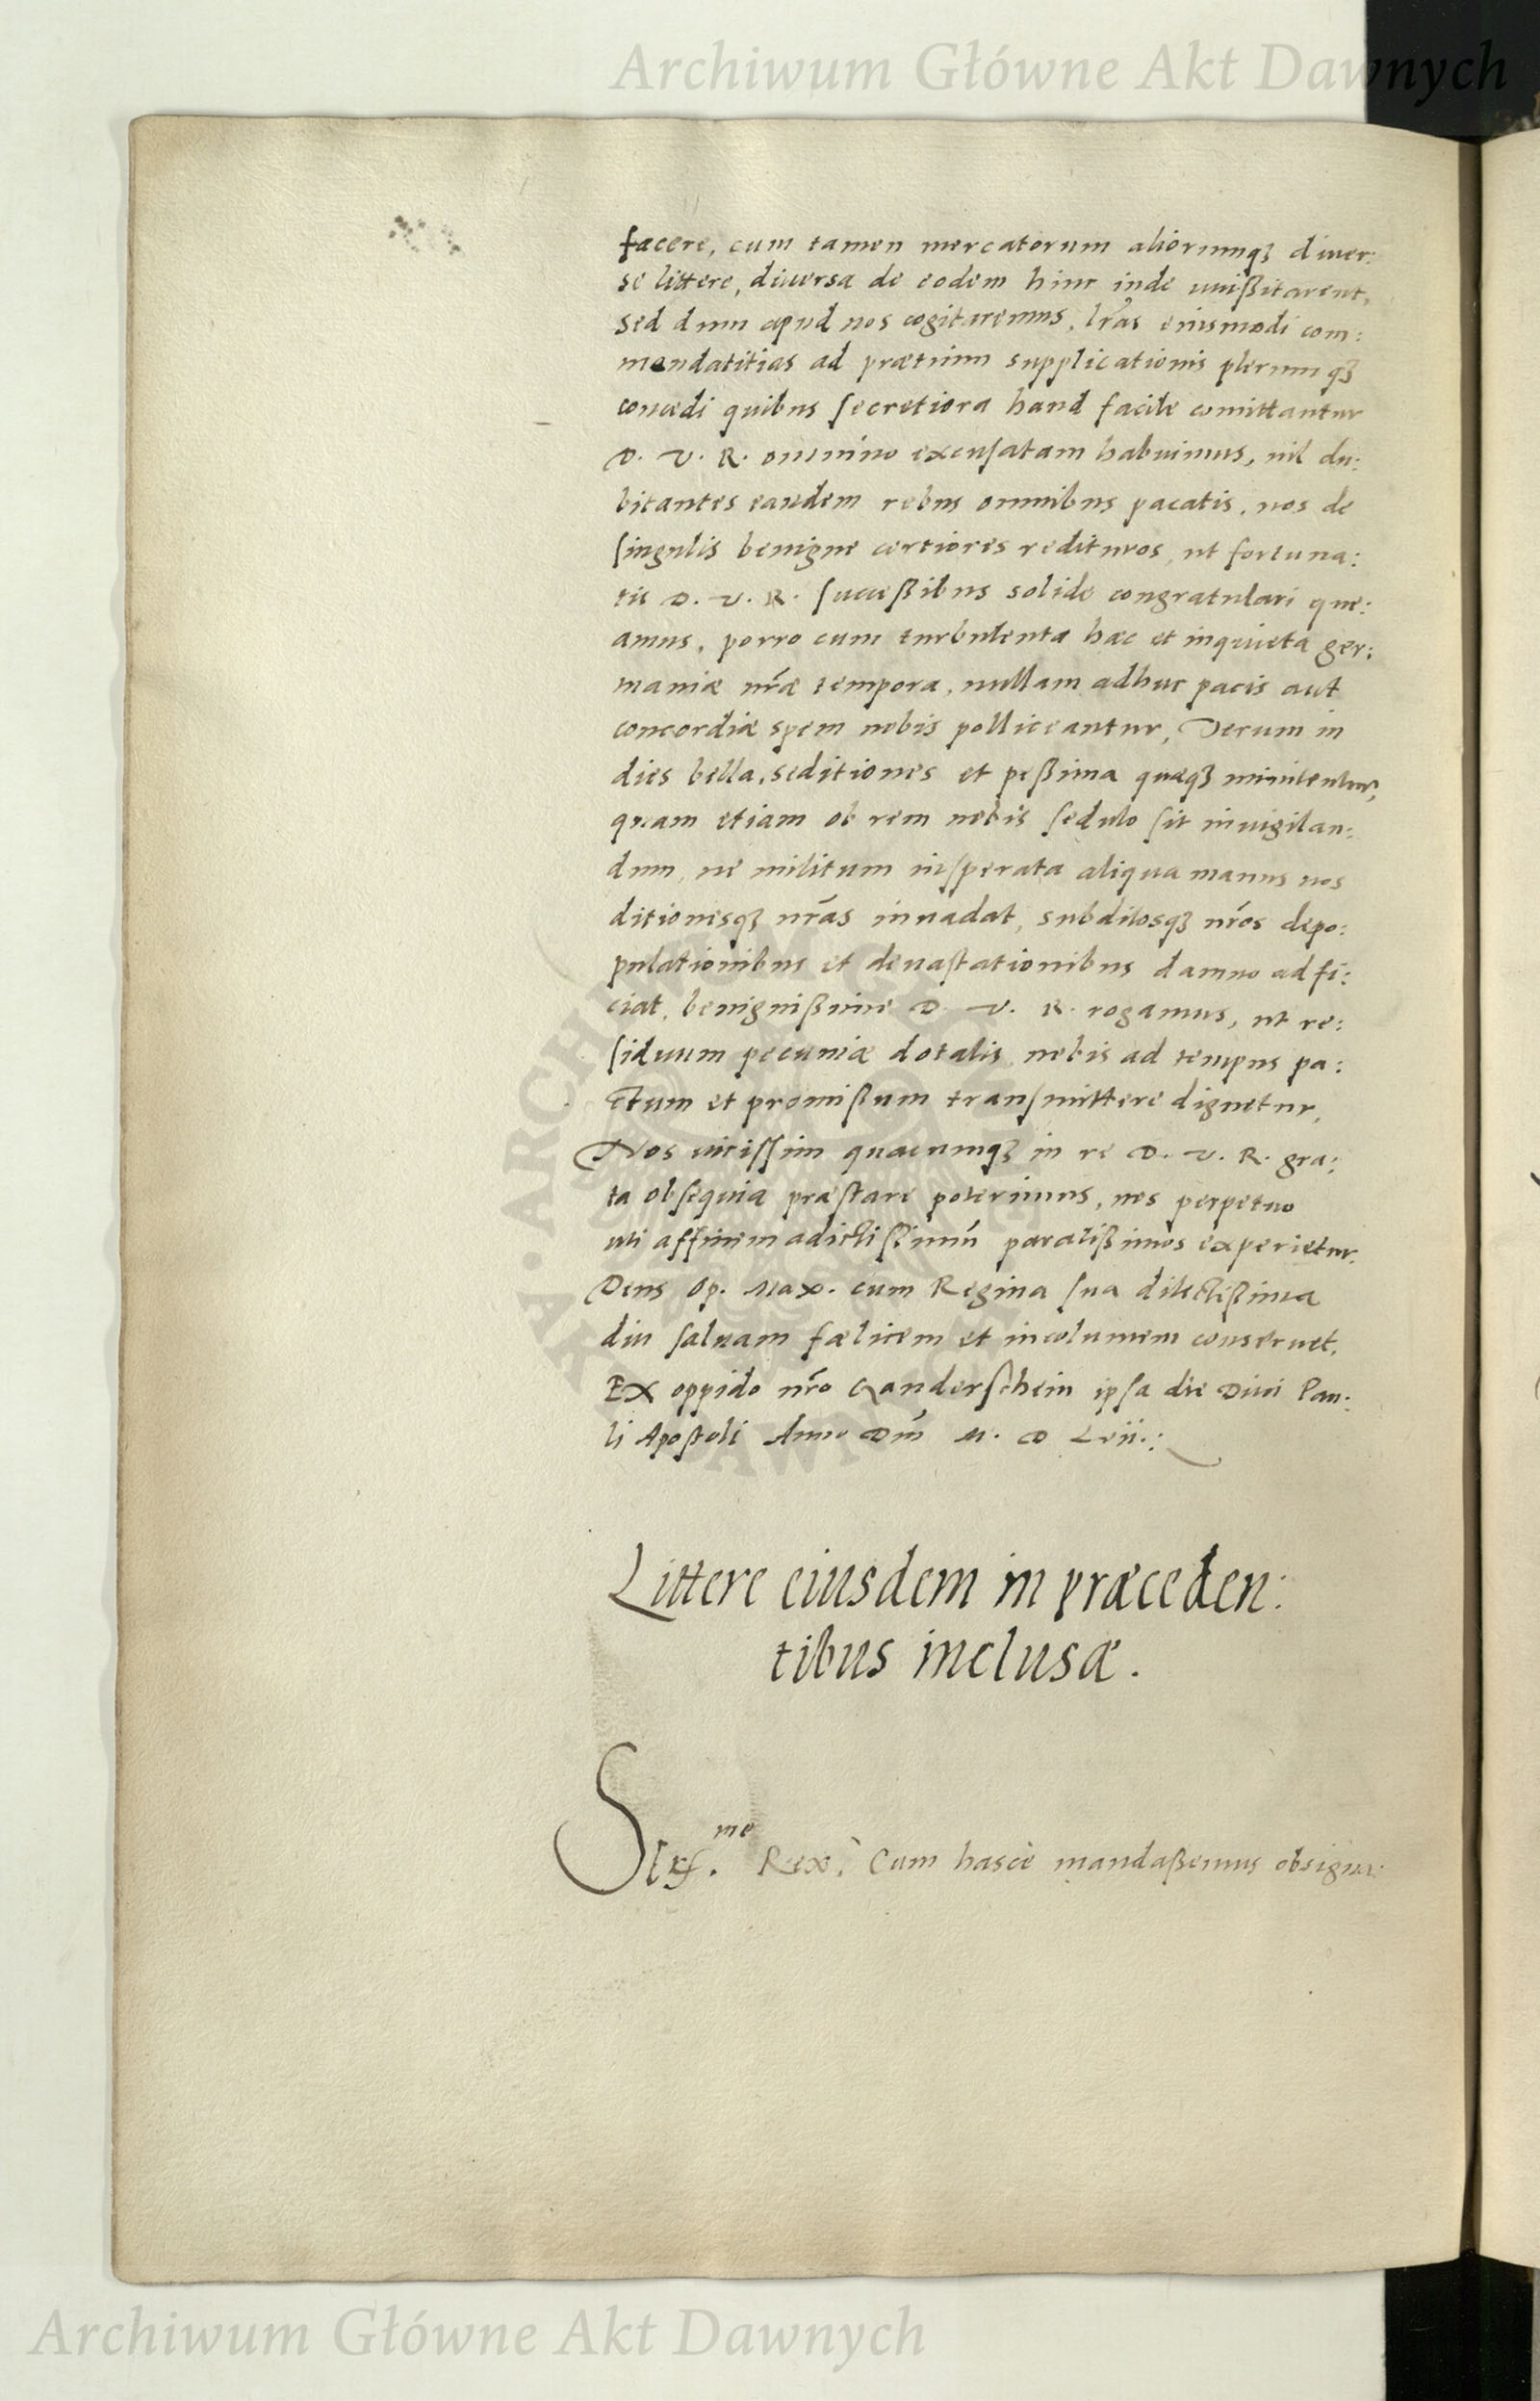 Archiwum Główne Akt Dawnych
facere, cum tamen mercatorum aliorumqꝫ diuer:
se littere, diuersa de eodem hinc inde
sed dum apud nos cogitaremus, lr̃as eiusmodi com:
mendatitias ad prætium supplicationis plerumqꝫ
concedi quibus secretiora haud facile comittantur
D. V. R. omnino excusatam habuimus, nil du:
bitantes eandem rebus omnibus pacatis, nos de
singulis benigne certiores redituros, ut fortuna:
tis D. V. R. successibus solide congratulari que:
amus, porro cum turbulenta hæc et inquieta ger:
maniæ nr̃æ tempora, nullam adhuc pacis aut
concordiæ spem nobis polliceantur, Verum in
dies bella, seditiones et peßima quæqꝫ minitentur,
quam etiam ob rem nobis sedulo sit inuigilan:
dum, ne militum insperata aliqua manus nos
ditionesqꝫ nr̃as inuadat, subditosqꝫ nr̃os depo:
pulationibus et deuastationibus damno adfi:
ciat, benignißime D. V. R. rogamus, ut re:
siduum pecuniæ dotalis nobis ad tempus pa:
ctum et promißum transmittere dignetur,
Nos uicissim quacumqꝫ in re D. V. R. gra:
ta obsequia præstare poterimus, nos perpetuo
uti affinem adictissimũ paratißimos experietur.
Deus Op. Max. cum Regina sua dilectißima
diu saluam fælicem et incolumem conseruet,
Ex oppido nr̃o Ganderschein ipsa die Diui Pau:
li Apostoli Anno Dñi M. D Lvii.:
Littere eiusdem in præceden:
tibus inclusæ.
Rex, Cum hasce mandaßemus obsigna:
ARCHIWUM GŁÓWNE AKT DAWNYCH
Archiwum Główne Akt Dawnych